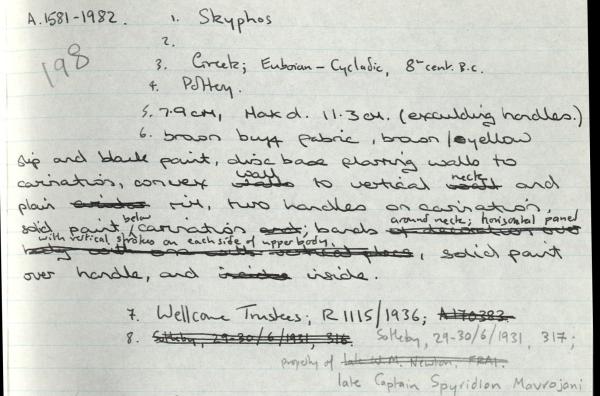 A.1581-1982. 1. Skyphos
198 2.
3. Greek; Euboian-Cycladic, 8th cent. B.C.
4. Pottery.
5. 7.9 cm, Max d. 11.3 cm. (exculding handles.)
6. brown buff fabric, brown/oyellow
slip and black paint, disc base flarring walls to
carination, convex wall to vertical neck and
plain rim, two handles on carination,
solid paint / below carination; bands around neck; horizontal panel
with vertical strokes on each side of upper body, solid paint
over handle, and inside.
7. Wellcome Trustees; R1115/1936; A170383.
8. Sotheby, 29-30/6/1931, 316. Sotheby, 29-30/6/1931, 317;
property of late W.M. Newton, FRAI.
late Captain Spyridion Mavrojani